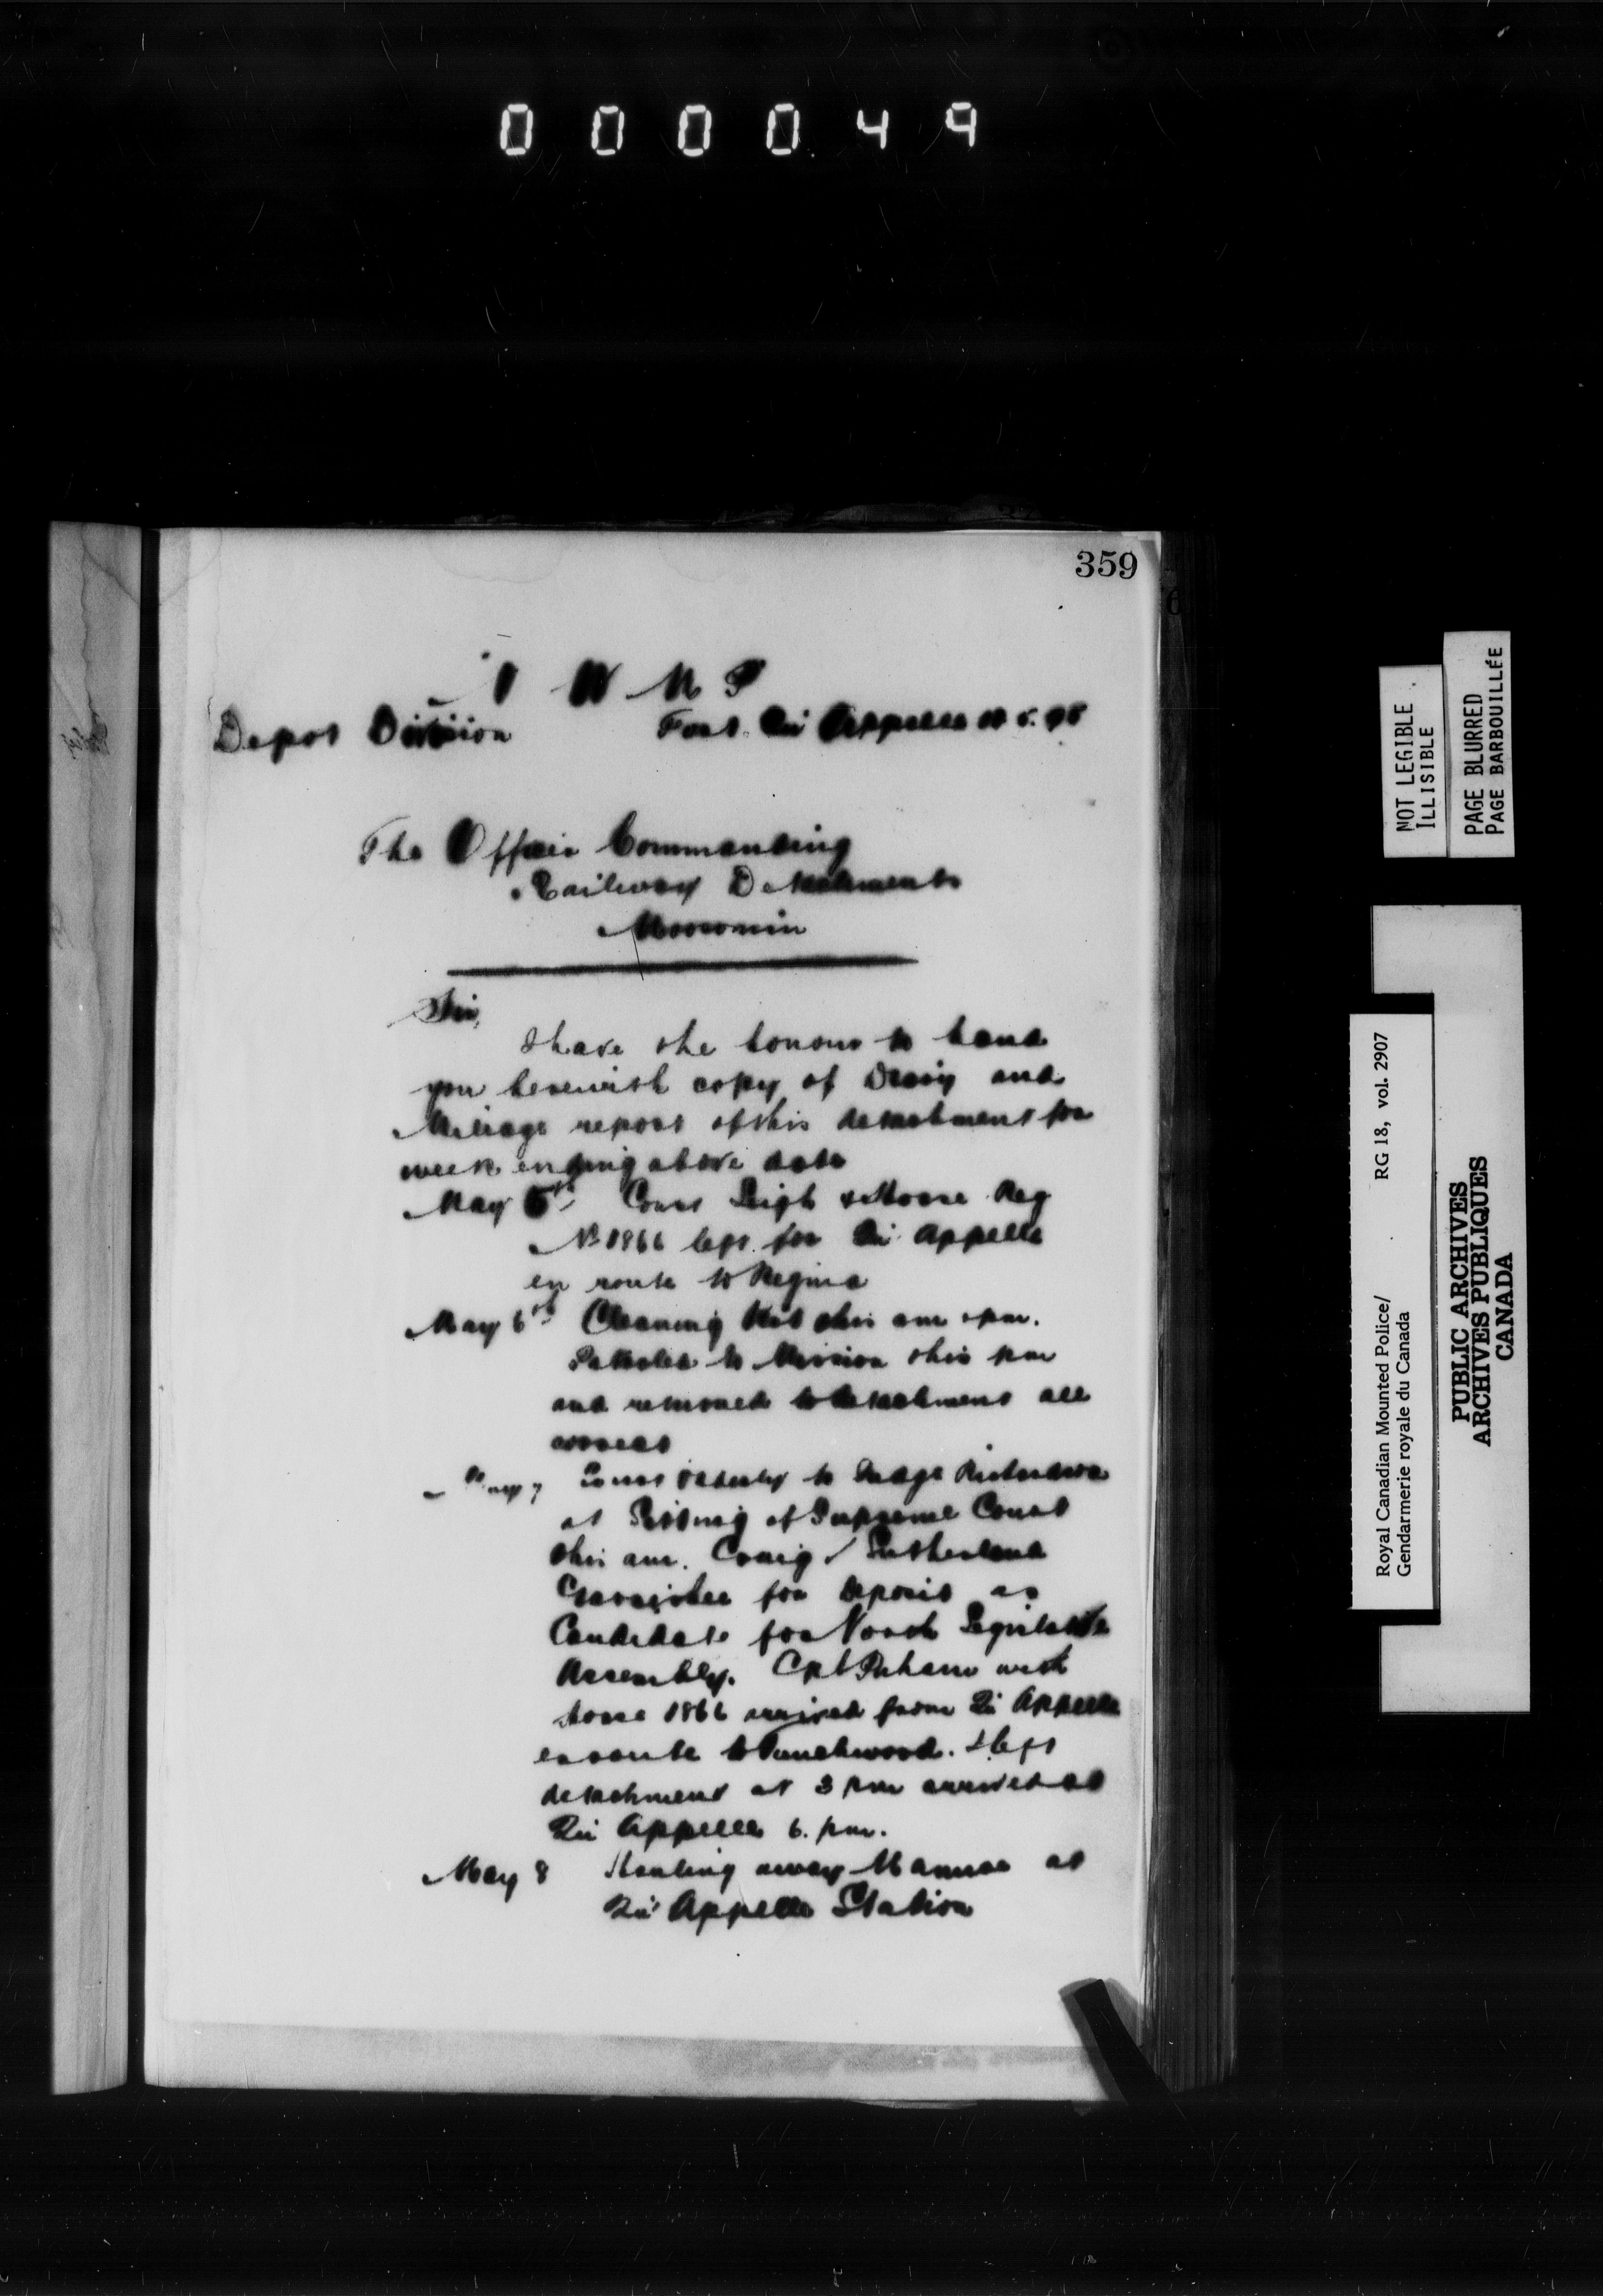 000049
359
N W M P
Depot Division Fort Qu'Appelle 5. 98
The Officer Commanding
Railway Detachments
Moosomin
Sir,
I have the honour to hand
you herewith copy of Diary and
Mileage report of this detachment for
week ending above date
May 5th Const Leigh & Horse Reg
No 1866 left for Qu'Appelle
en route to Regina
May 6th Cleaning Kit this am & pm.
Patrolled to Mission this pm
and returned to detachment all
correct
May 7 Const Orderly to Judge Richardson
at Sitting of Supreme Court
this am. Craig Sutherland
for deposit as
Candidate for North Legislative
Assembly. Cpl with
Horse 1866 arrived from Qu'Appelle
en route to Touchwood. I left
detachment at 3 pm arrived at
Qu'Appelle 6. pm.
May 8 Hauling away Manure at
Qu'Appelle Station
NOT LEGIBLE
ILLISIBLE
PAGE BLURRED
PAGE BARBOUILLÉE
Royal Canadian Mounted Police/ RG 18, vol. 2907
Gendarmerie royale du Canada
PUBLIC ARCHIVES
ARCHIVES PUBLIQUES
CANADA